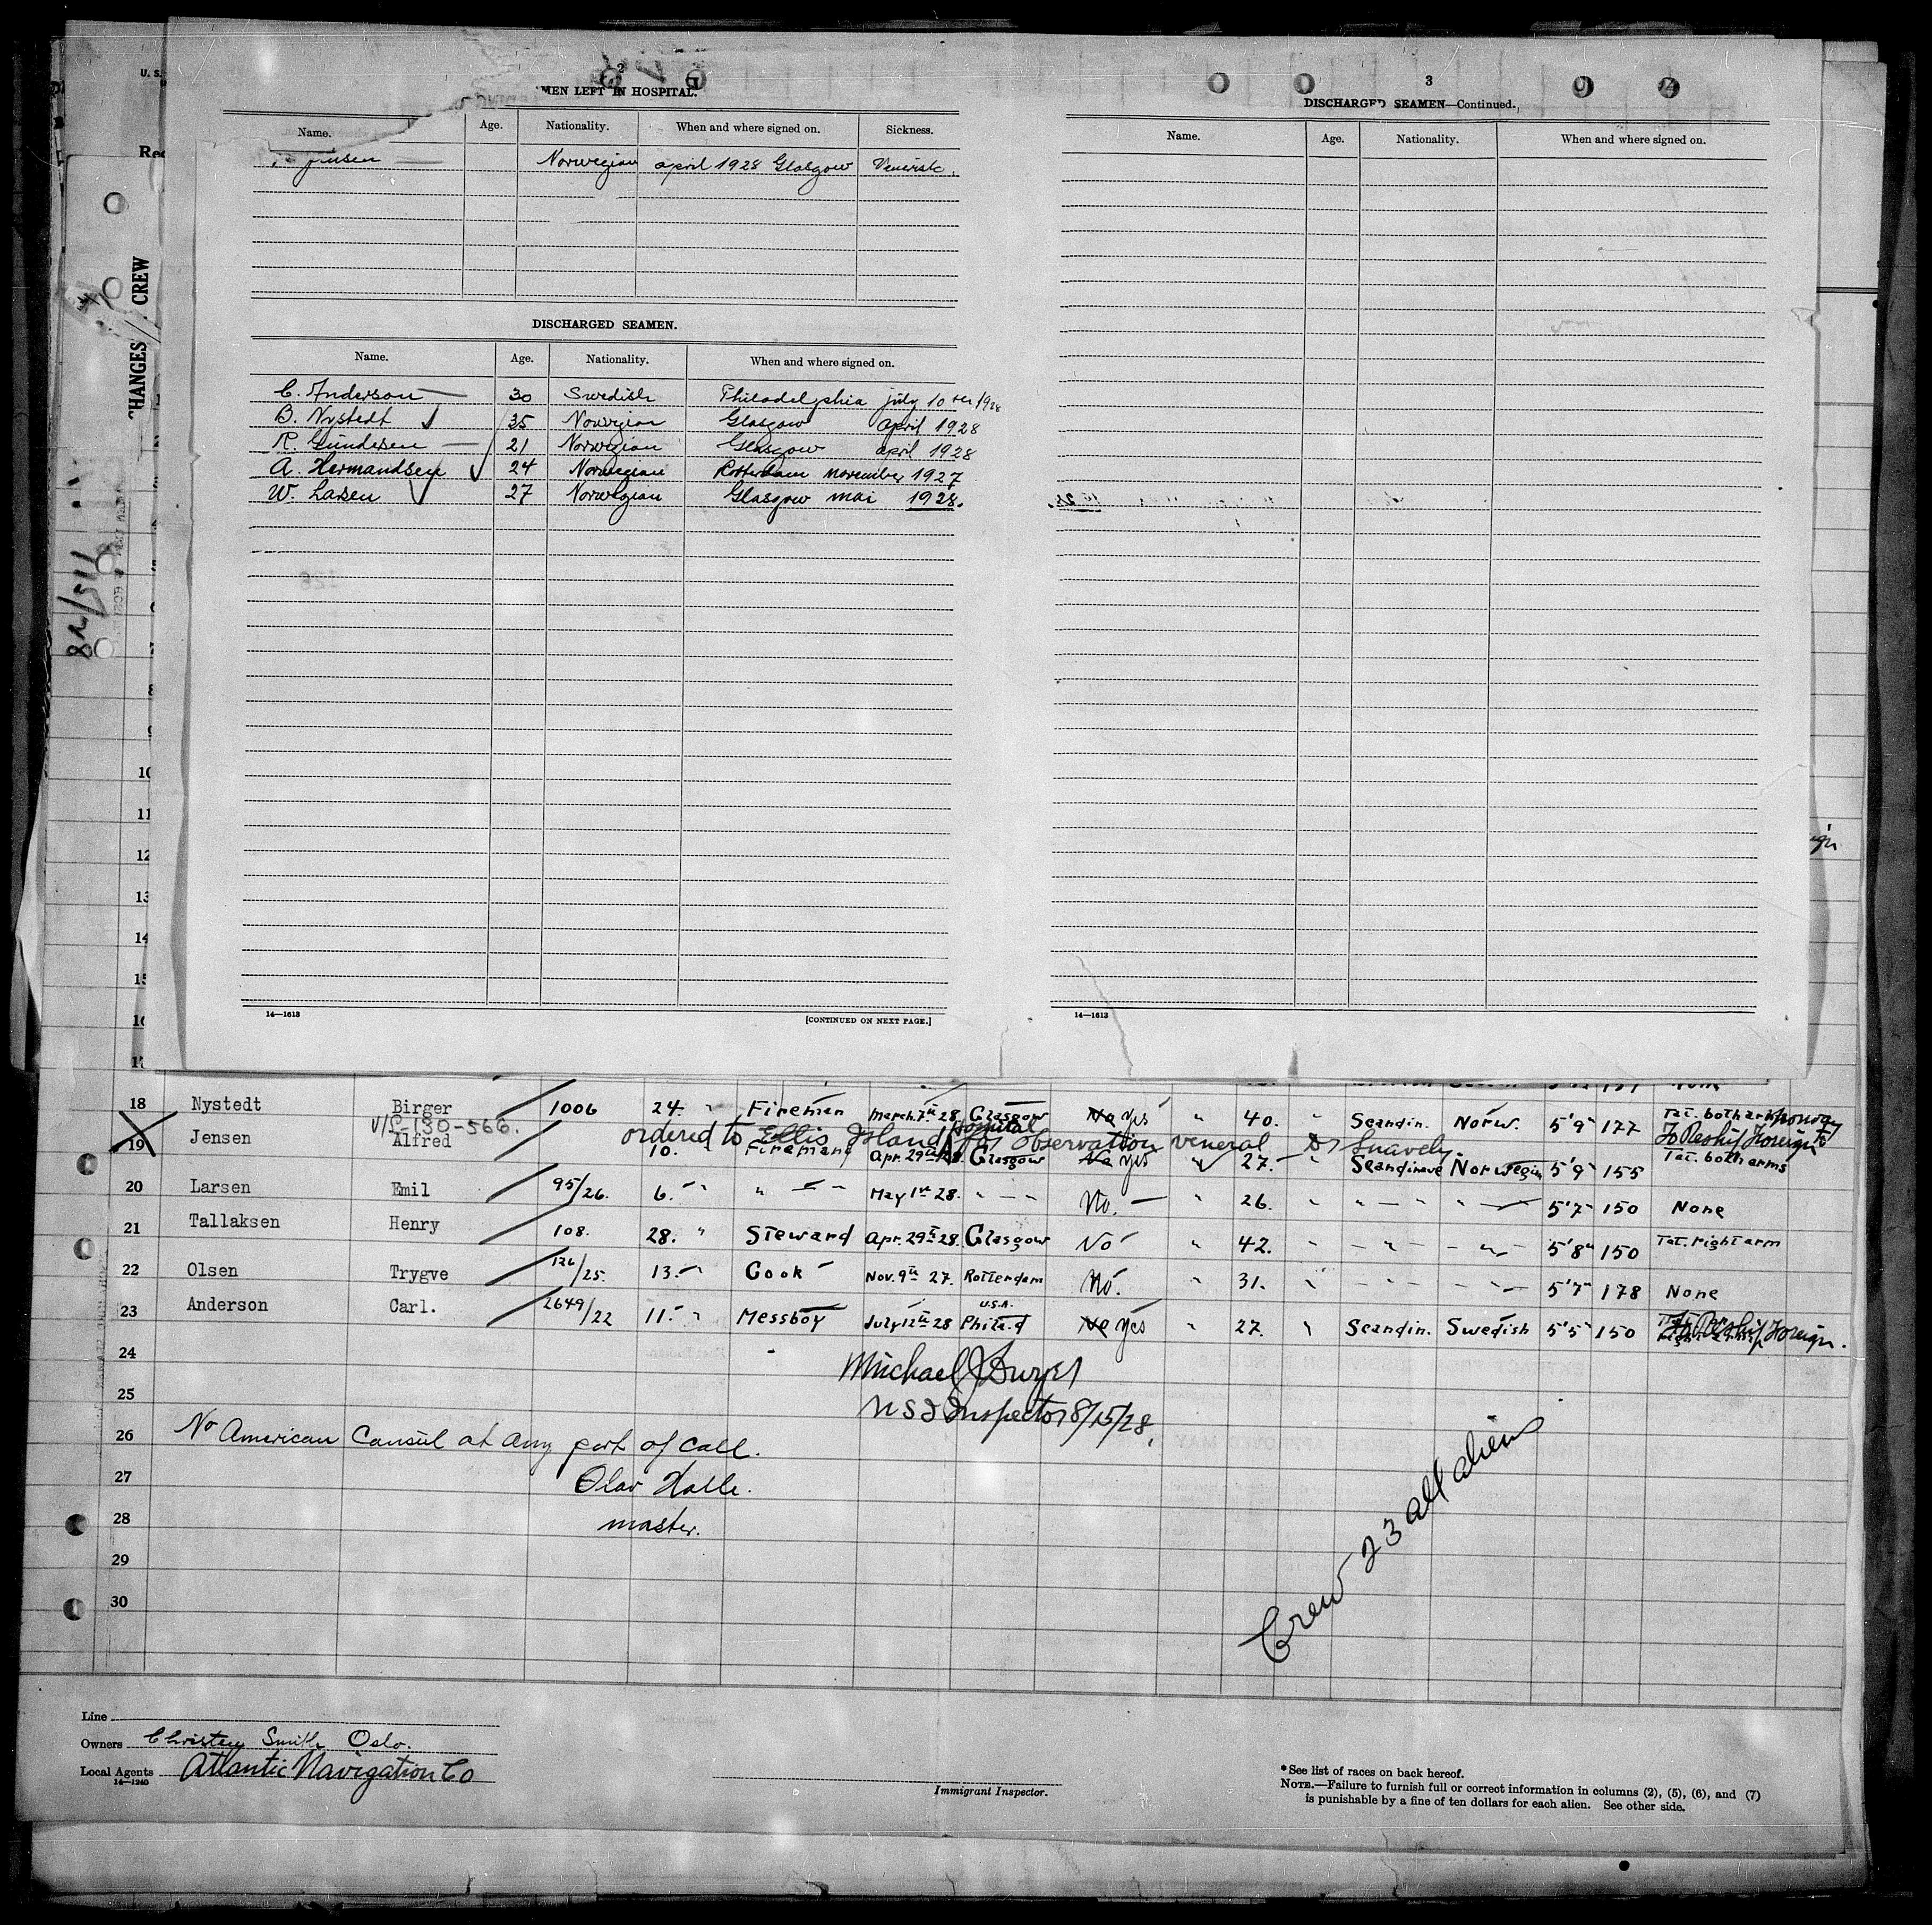 U. S.
Rec
CHANGES / CREW
82/511
2
MEN LEFT IN HOSPITAL.
Name. Age. Nationality. When and where signed on. Sickness.
Norwegian april 1928 Glasgow Venerisk.
DISCHARGED SEAMEN.
Name. Age. Nationality. When and where signed on.
C. Anderson — 30 Swedish Philadelphia july 10 th 1928
B. Nystedt ✓ 35 Norwegian Glasgow april 1928
R. Gundesen — 21 Norwegian Glasgow april 1928
A. Hermandsen ✓ 24 Norwegian Rotterdam november 1927
W. Larsen ✓ 27 Norwegian Glasgow mai 1928.
14—1613 [CONTINUED ON NEXT PAGE.]
3
DISCHARGED SEAMEN—Continued.
Name. Age. Nationality. When and where signed on.
14—1613
10
11
12
13
14
15
16
17
18 Nystedt Birger 1006 24. " Fireman March. 7th 28. Glasgow No Yes " 40. " Scandin. Norw. 5'9" 177 Tat. both arms Norway
V/L-130-566. ordered to Ellis Island Hospital for observation veneral Dr Snavely. To Reship Foreign
19 Jensen Alfred 10. " Fireman Apr. 29th 28. Glasgow No Yes " 27. " Scandinave Norwegin 5'9" 155 Tat. both arms
20 Larsen Emil 95/26. 6. " " — " May 1st 28. " — " No. — " 26. " " — " " — 5'7" 150 None
21 Tallaksen Henry 108. 28. " Steward Apr. 29th 28. Glasgow No " 42. " " — " — " — 5'8" 150 Tat. right arm
22 Olsen Trygve 126/25. 13. " Cook Nov. 9th 27. Rotterdam No. " 31. " " — " — " — 5'7" 178 None
23 Anderson Carl. 2649/22 11. " Messboy July 12th 28 U.S.A. Philad No Yes " 27. " Scandin. Swedish 5'5" 150 To Reship Foreign.
24
25
26
27
28
29
30
Michael J Dwyer
U S I Inspector 8/15/28.
No American Consul at any port of call.
Olav Halle.
master.
Crew 23 all aliens
Line
Owners Christen Smith Oslo.
Local Agents Atlantic Navigation Co
14—1240
Immigrant Inspector.
* See list of races on back hereof.
NOTE.—Failure to furnish full or correct information in columns (2), (5), (6), and (7)
is punishable by a fine of ten dollars for each alien. See other side.